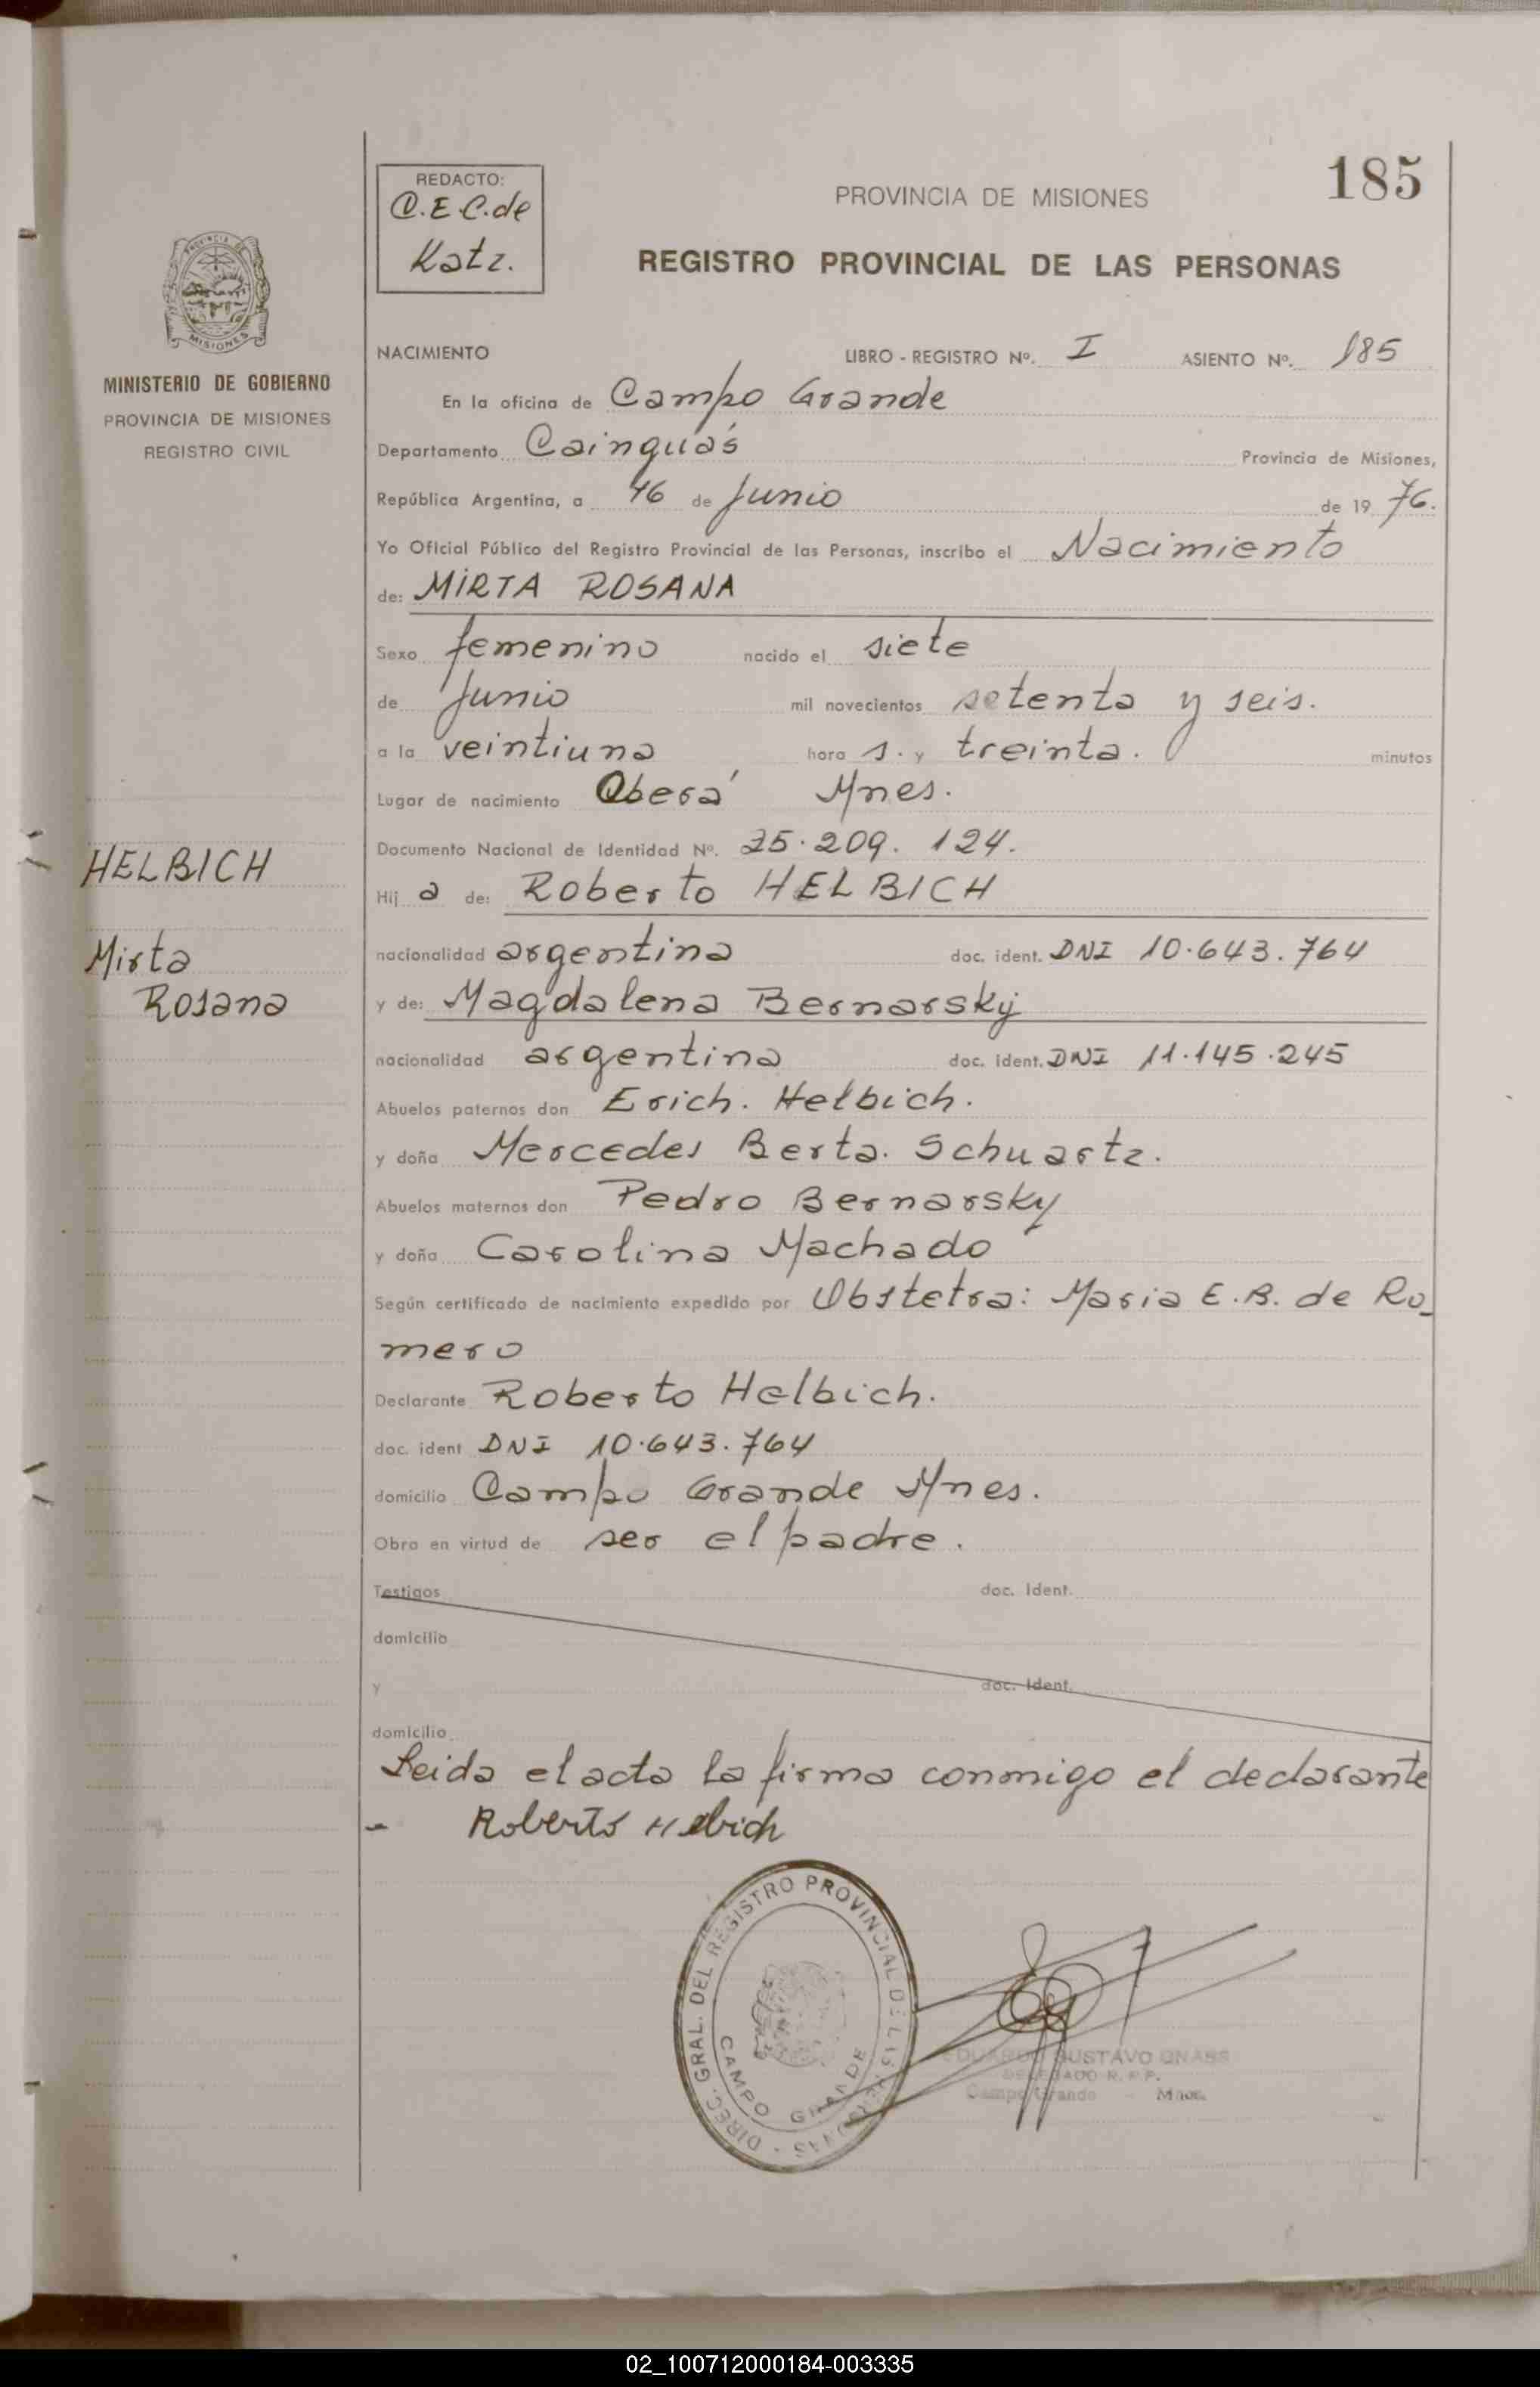 185
REDACTO:
C.E.C.de
Katz.
PROVINCIA DE MISIONES
REGISTRO PROVINCIAL DE LAS PERSONAS
PROVINCIA DE
MISIONES
MINISTERIO DE GOBIERNO
PROVINCIA DE MISIONES
REGISTRO CIVIL
NACIMIENTO LIBRO - REGISTRO Nº. I ASIENTO Nº. 185
En la oficina de Campo Grande
Departamento Cainguás Provincia de Misiones,
República Argentina, a de Junio de 19 76.
Yo Oficial Público del Registro Provincial de las Personas, inscribo el Nacimiento
de: MIRTA ROSANA
Sexo femenino nacido el siete
de Junio mil novecientos setenta y seis.
a la veintiuna hora s. y treinta. minutos
Lugar de nacimiento Oberá Mnes.
Documento Nacional de Identidad Nº. 25.209.124.
HELBICH
Hij a de: Roberto HELBICH
Mirta
Rosana
nacionalidad argentina doc. ident. DNI 10.643.764
y de: Magdalena Bernarsky
nacionalidad argentina doc. ident. DNI 11.145.245
Abuelos paternos don Erich. Helbich.
y doña Mercedes Berta. Schuartz.
Abuelos maternos don Pedro Bernarsky
y doña Carolina Machado
Según certificado de nacimiento expedido por Obstetra: Maria E.B. de Ro_
mero
Declarante Roberto Helbich.
doc. ident DNI 10.643.764
domicilio Campo Grande Mnes.
Obra en virtud de ser el padre.
Testigos doc. Ident.
domicilio
y doc. Ident.
domicilio
Leida el acta la firma conmigo el declarante
- Roberto Helbich
DIREC. GRAL. DEL REGISTRO PROVINCIAL DE LAS PERSONAS -
CAMPO GRANDE
EDUARDO GUSTAVO GNASS
DELEGADO R.P.P.
Campo Grande - Mnes.
02_100712000184-003335